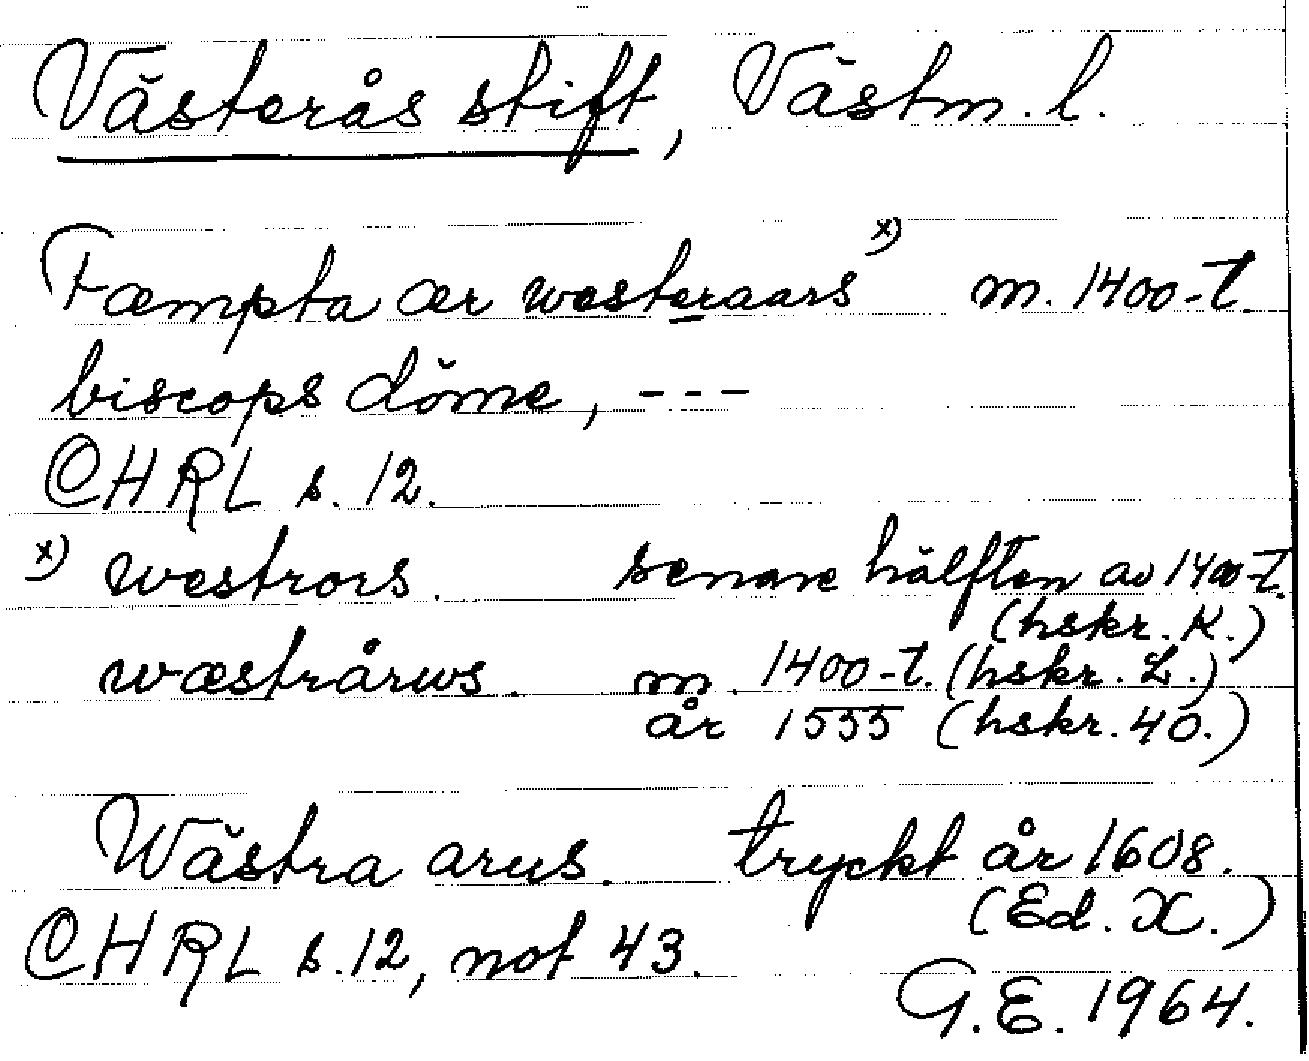 Västerås stift, Västm. l.
Fæmpta ær westeraars x) m. 1400-t.
biscops döme, ---
CHRL s. 12.
x) westrors. senare hälften av 1400-t.
(hskr. K.)
wæstrårws. m. 1400-t. (hskr. L.)
år 1555 (hskr. 40.)
Wästra arus. tryckt år 1608.
(Ed. X.)
CHRL s. 12, not 43.
G.E. 1964.